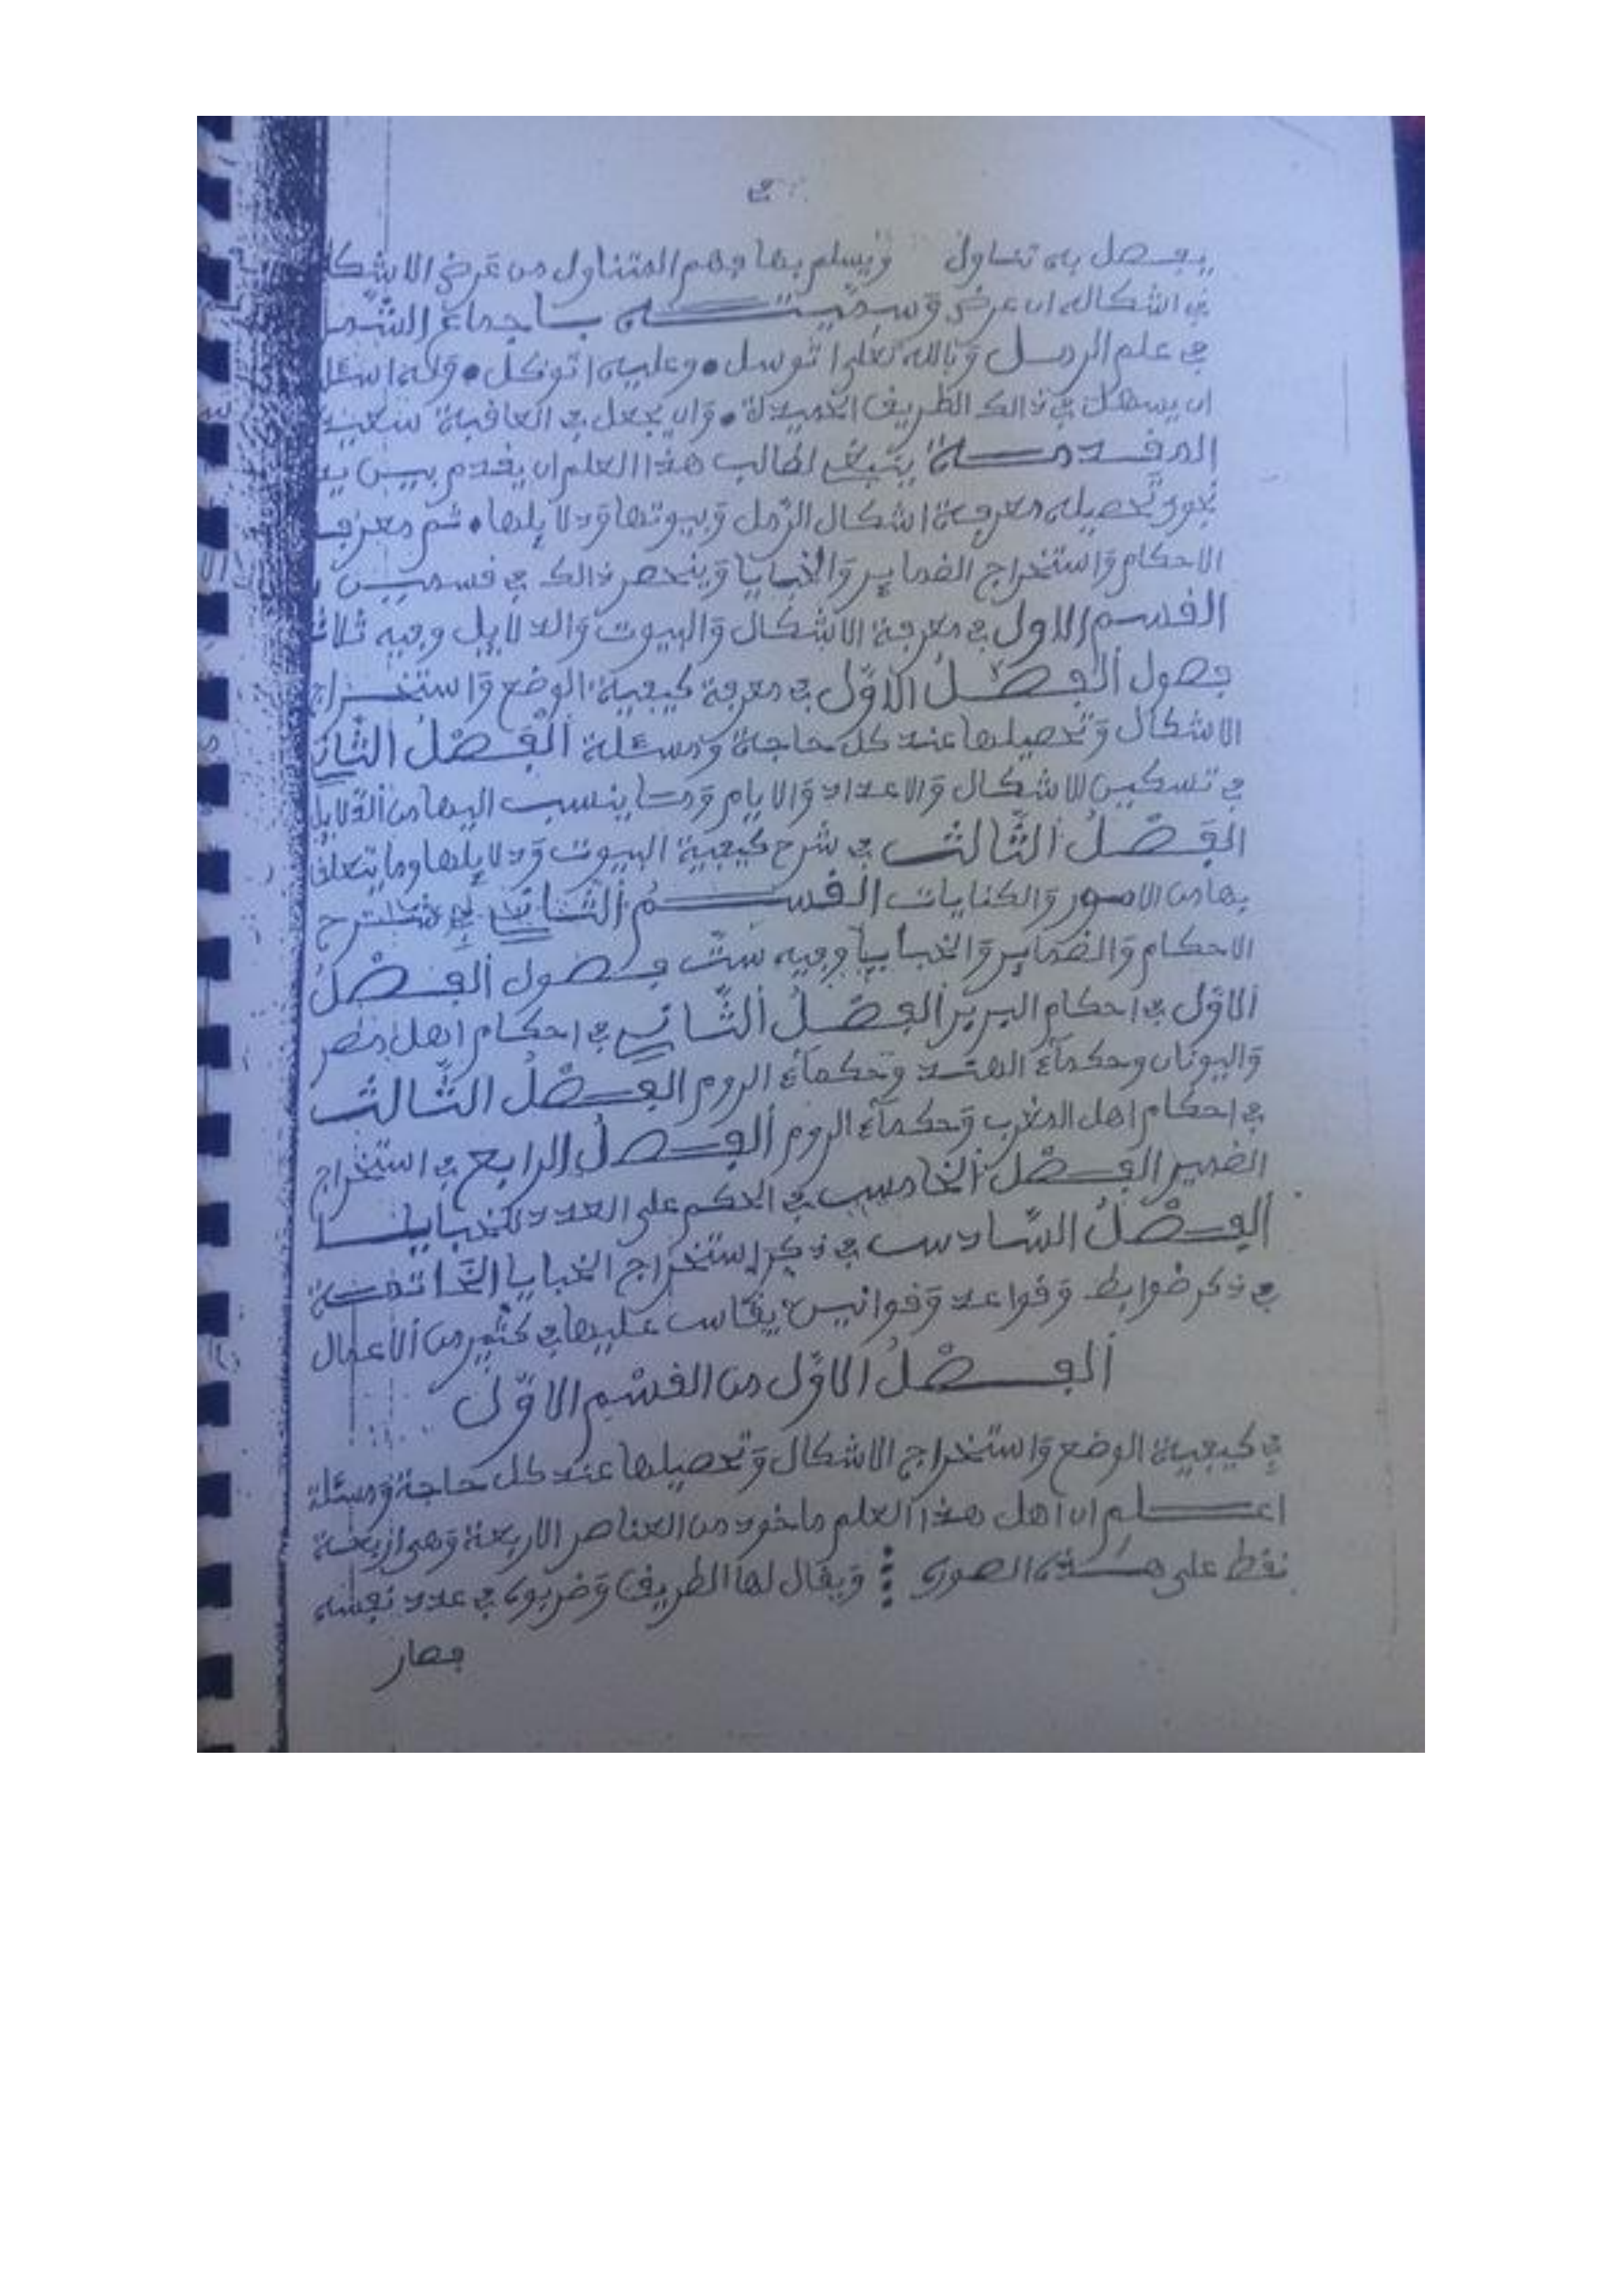 يفصل به تناول ويسلم بها فهم المتناول من عرض الاشكا
في اشكاله ان عرض وسميته باجماع الشمل
في علم الرمل وبالله تعلى اتوسل • وعليه اتوكل • وله اسئل
ان يسهل في ذالك الطريق الحميدة • وان يجعل في العاقبة سعيد
المقدمة ينبغي لطالب هذا العلم ان يقدم بين يد
تحصيله معرفة اشكال الرمل وبيوتها ودلايلها • ثم معرف
الاحكام واستخراج الضماير والخبايا وينحصر ذالك في قسمين
القسم الاول في معرفة الاشكال والبيوت والدلايل وفيه ثلاث
فصول الفصل الاول في معرفة كيفية الوضع واستخراج
الاشكال وتحصيلها عند كل حاجة ومسئلة الفصل الثاني
في تسكين الاشكال والاعداد والايام وما ينسب اليها من الدلايل
الفصل الثالث في شرح كيفية البيوت ودلايلها وما يتعلق
بها من الامور والكنايات القسم الثاني في شرح
الاحكام والضماير والخبايا وفيه ست فصول الفصل
الاول في احكام البربر الفصل الثاني في احكام اهل مصر
واليونان وحكماء الهند وحكماء الروم الفصل الثالث
في احكام اهل المغرب وحكماء الروم الفصل الرابع في استخراج
الضمير الفصل الخامس في الحكم على العدد للخبايا
الفصل السادس في ذكر استخراج الخبايا الخاتمة
في ذكر ضوابط وقواعد وقوانين يقاس عليها في كثير من الاعمال
الفصل الاول من القسم الاول
في كيفية الوضع واستخراج الاشكال وتحصيلها عند كل حاجة ومسئلة
اعلم ان اهل هذا العلم ماخوذ من العناصر الاربعة وهي اربعة
نقط على هذه الصورة ⁞ ويقال لها الطريق وضربوه في عدد نفسه
فصار